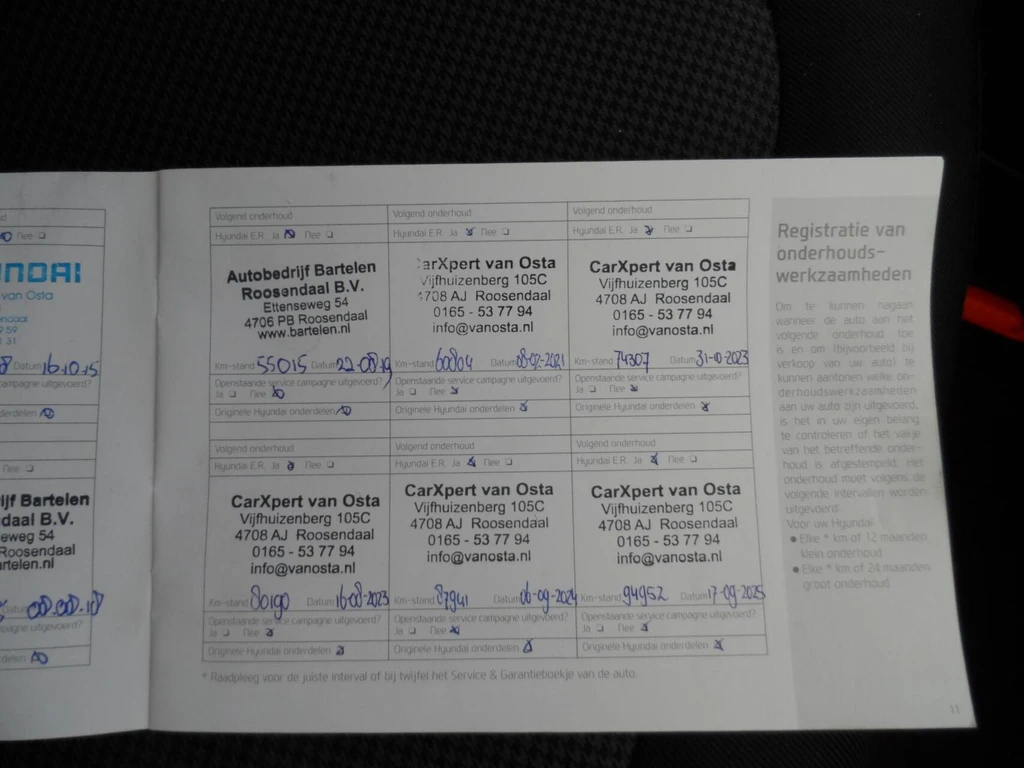 NDAI
van Osta
Datum 16.10.15
campagne uitgevoerd?
Nee
jf Bartelen
daal B.V.
eweg 54
Roosendaal
rtelen.nl
Volgend onderhoud
Hyundai E.R. Ja Nee
Autobedrijf Bartelen
Roosendaal B.V.
Ettenseweg 54
4706 PB Roosendaal
www.bartelen.nl
Km-stand 55015 Datum 22-08-19
Openstaande service campagne uitgevoerd?
Ja Nee
Originele Hyundai onderdelen
Volgend onderhoud
Hyundai E.R. Ja Nee
arXpert van Osta
Vijfhuizenberg 105C
4708 AJ Roosendaal
0165 - 53 77 94
info@vanosta.nl
Km-stand 60804 Datum 08-02-2021
Openstaande service campagne uitgevoerd?
Ja Nee
Originele Hyundai onderdelen
Volgend onderhoud
Hyundai E.R. Ja Nee
CarXpert van Osta
Vijfhuizenberg 105C
4708 AJ Roosendaal
0165 - 53 77 94
info@vanosta.nl
Km-stand 74307 Datum 31-10-2023
Openstaande service campagne uitgevoerd?
Ja Nee
Originele Hyundai onderdelen
Volgend onderhoud
Hyundai E.R. Ja Nee
CarXpert van Osta
Vijfhuizenberg 105C
4708 AJ Roosendaal
0165 - 53 77 94
info@vanosta.nl
Km-stand 80190 Datum 16-08-2023
Openstaande service campagne uitgevoerd?
Ja Nee
Originele Hyundai onderdelen
Volgend onderhoud
Hyundai E.R. Ja Nee
CarXpert van Osta
Vijfhuizenberg 105C
4708 AJ Roosendaal
0165 - 53 77 94
info@vanosta.nl
Km-stand 87941 Datum 06-09-2024
Openstaande service campagne uitgevoerd?
Ja Nee
Originele Hyundai onderdelen
Volgend onderhoud
Hyundai E.R. Ja Nee
CarXpert van Osta
Vijfhuizenberg 105C
4708 AJ Roosendaal
0165 - 53 77 94
info@vanosta.nl
Km-stand 94952 Datum 17-09-2025
Openstaande service campagne uitgevoerd?
Ja Nee
Originele Hyundai onderdelen
* Raadpleeg voor de juiste interval of bij twijfel het Service & Garantieboekje van de auto.
Registratie van
onderhouds-
werkzaamheden
Om te kunnen nagaan
wanneer de auto aan het
volgende onderhoud toe
is en om (bijvoorbeeld bij
verkoop van uw auto) te
kunnen aantonen welke on-
derhoudswerkzaamheden
aan uw auto zijn uitgevoerd,
is het in uw eigen belang
te controleren of het vakje
van het betreffende onder-
houd is afgestempeld. Het
onderhoud moet volgens de
volgende intervallen worden
uitgevoerd.
Voor uw Hyundai
● Elke * km of 12 maanden
klein onderhoud
● Elke * km of 24 maanden
groot onderhoud
11